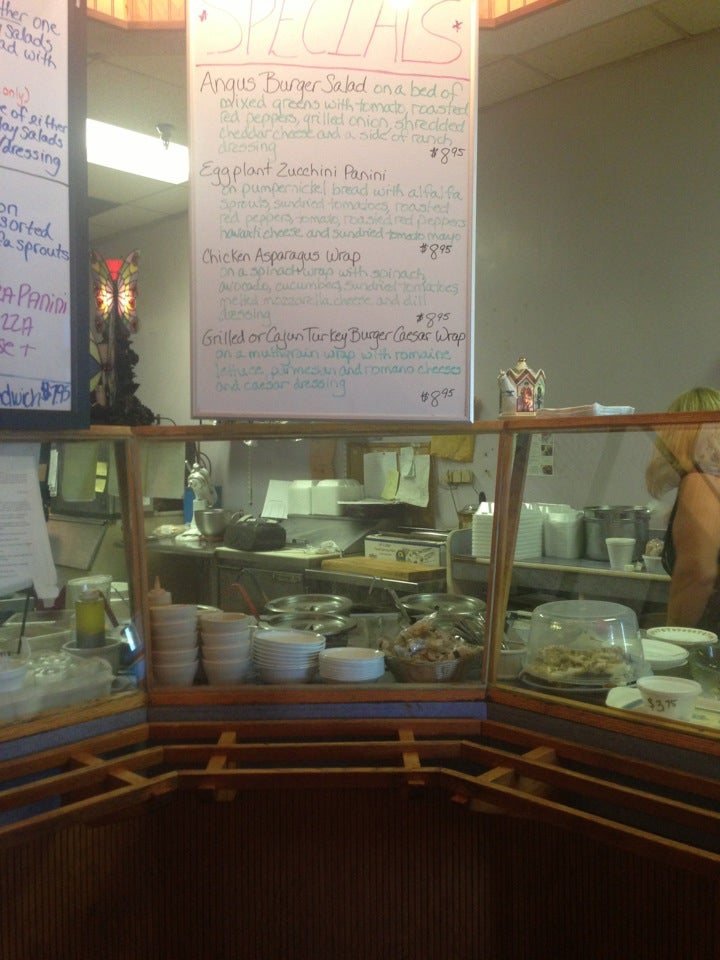 ther one
y salads
ad with
only)
e of either
day salads
dressing
on
sorted
a sprouts
PANINI
ZZA
se +
dwich $7.95
* SPECIALS *
Angus Burger Salad on a bed of
mixed greens with tomato, roasted
red peppers, grilled onion, shredded
cheddar cheese and a side of ranch
dressing $8.95
Eggplant Zucchini Panini
on pumpernickel bread with alfalfa
sprouts, sundried tomatoes, roasted
red peppers, tomato, roasted red peppers
havarti cheese and sundried tomato mayo
$8.95
Chicken Asparagus Wrap
on a spinach wrap with spinach,
avocado, cucumbers, sundried tomatoes,
melted mozzarella cheese and dill
dressing $8.95
Grilled or Cajun Turkey Burger Caesar Wrap
on a multigrain wrap with romaine
lettuce, parmesan and romano cheeses
and caesar dressing
$8.95
$3.75